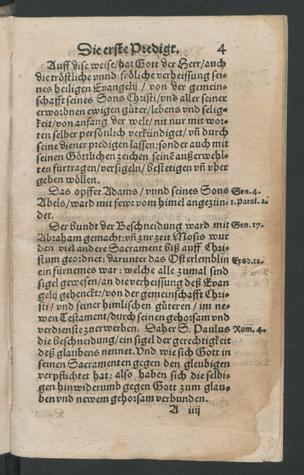 Die erste Predigt. 4
Auff dise weise/hat Gott der Herr/auch
die tröstliche vnnd fröliche verheissung sei-
nes heiligen Euangelij / von der gemein-
schafft seines Sons Christi/vñ aller seiner
erworbnen ewigen güter/lebens vnd selig-
keit/von anfang der welt/nit nur mit wor-
ten selber persönlich verkündiget/vñ durch
seine diener predigen lassen: sonder auch mit
seinen Göttlichen zeichen seinē außerwehl-
ten fürtragen/versigeln/bestetigen vñ vber
geben wöllen.
Das opffer Adams/vnnd seines Sons Gen.4.
Abels/ward mit fewr vom himel angezün- 1.Paral.2.
det.
Der bundt der Beschneidung ward mit Gen.17.
Abraham gemacht: vñ zur zeit Mosis wur
den viel andere Sacrament biß auff Chri-
stum geordnet: darunter das Osterlemblin Exod.12.
ein fürnemes war: welche alle zumal sind
sigel gewesen/an die verheissung deß Euan
gelij gehenckt/von der gemeinschafft Chri-
sti/vnd seiner himlischen güteren/im ne-
wen Testament/durch seinen gehorsam vnd
verdienste zuerwerben. Daher S. Paulus Rom.4.
die Beschneidung/ein sigel der gerechtigkeit
deß glaubens nennet. Vnd wie sich Gott in
seinen Sacramenten gegen den gleubigen
verpflichtet hat: also haben sich die selbi-
gen hinwiderumb gegen Gott zum glau-
ben vnd newem gehorsam verbunden.
A iiij